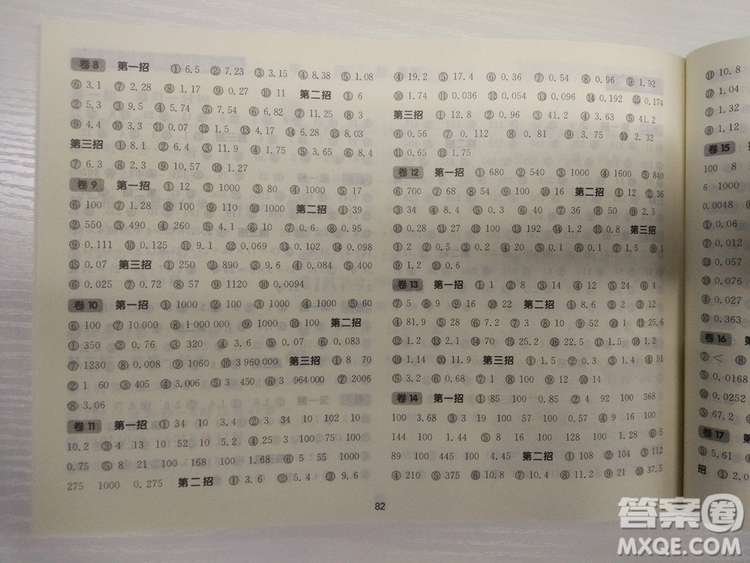 卷8 第一招 ①6.5 ②7.23 ③3.15 ④8.38 ⑤1.08
⑥3.1 ⑦2.28 ⑧1.17 ⑨0.27 ⑩11 第二招 ①6
②5.3 ③9.5 ④5.74 ⑤7.54 ⑥6.82 ⑦11.25 ⑧3
⑨4.4 ⑩3.3 ⑪0.07 ⑫1.5 ⑬4.17 ⑭6.18 ⑮8.03
第三招 ①8.1 ②6.4 ③11.9 ④1.75 ⑤3.65 ⑥8.4
⑦6.3 ⑧2.3 ⑨10,57 ⑩1.27
卷9 第一招 ①12 ②1000 ③80 ④1000 ⑤17
⑥100 ⑦1.28 ⑧100 ⑨110 ⑩1000 第二招 ①39
②550 ③490 ④260 ⑤4.1 ⑥10 ⑦0.6 ⑧0.95
⑨0.111 ⑩0.125 ⑪9.1 ⑫0.069 ⑬0.102 ⑭0.098
⑮0.07 第三招 ①250 ②890 ③9.6 ④0.084 ⑤400
⑥0.025 ⑦0.72 ⑧57 ⑨1120 ⑩0.0094
卷10 第一招 ①1000 ②100 ③1000 ④1000 ⑤60
⑥100 ⑦10 000 ⑧1 000 000 ⑨1000 ⑩100 第二招
①350 ②0.76 ③320 ④3350 ⑤0.06 ⑥0.083
⑦1230 ⑧0.008 ⑨1060 ⑩3 960 000 第三招 ①8 70
②1 60 ③405 ④4.005 ⑤3 650 ⑥3 964 000 ⑦2006
⑧3.06
卷11 第一招 ①34 10 3.4 ②3 34 10 102 10
10.2 ③4 13 10 52 10 5.2 ④3 25 100 75 100
0.75 ⑤8 21 100 168 100 1.68 ⑥5 55 25
275 1000 0.275 第二招 ①3.6 ②5.4 ③9.6
82
④19.2 ⑤17.4 ⑥0.36 ⑦0.54 ⑧0.96 ⑨1.92
⑩1.74 ⑪0.036 ⑫0.054 ⑬0.096 ⑭0.192 ⑮0.174
第三招 ①12.8 ②0.96 ③41.2 ④3.92 ⑤41.2
⑥0.56 ⑦0.112 ⑧0.81 ⑨3.75 ⑩2.32
⑪0.65 ⑫1.75
卷12 第一招 ①680 ②540 ③1000 ④1600 ⑤840
⑥700 ⑦68 ⑧54 ⑨100 ⑩16 第二招 ①12 ②36
③34 ④8.4 ⑤0.3 ⑥40 ⑦36 ⑧50 ⑨2.5
⑩0.28 ⑪27 ⑫100 ⑬192 ⑭0.8 ⑮24 第三招
①2 ②0.5 ③0.2 ④20 ⑤0.1 ⑥0.1 ⑦1.5 ⑧1
⑨1.2 ⑩0.6
卷13 第一招 ①1 ②8 ③14 ④3 ⑤24 ⑥4
⑦5 ⑧9 ⑨16 ⑩22 第二招 ①8.6 ②2 ③12
④81.9 ⑤28 ⑥7.2 ⑦3 ⑧10 ⑨52 ⑩1 ⑪25.6
⑫1.2 ⑬2.1 ⑭100 ⑮22.5 ⑯22.5 ⑰1.54 ⑱13.5
⑲1.14 ⑳11.9 第三招 ①1.5 ②0.3 ③1.4 ④51
⑤3.2 ⑥0.68 ⑦1 ⑧100 ⑨12 ⑩14
卷14 第一招 ①85 100 0.85 ②4 92 100 368
100 3.68 ③3 19 100 57 100 0.57 ④9 16 100
144 100 1.44 ⑤8 16 100 128 100 1.28 ⑥5
89 100 445 100 4.45 第二招 ①108 ②104 ③12
④210 ⑤375 ⑥10.8 ⑦10.4 ⑧11.2 ⑨21 ⑩37.5
⑪10.8
⑫1.04
⑬1.32
⑭1.12
卷15 第
100 8
6 1000
0.0048
⑩0.57
⑪0.057
⑫0.076
⑬0.026
⑩0.363
卷16 第
⑦<
⑤0.0168
⑩0.0252
⑤67.2
卷17 第
②5.61
招
答案圈
MXQE.COM